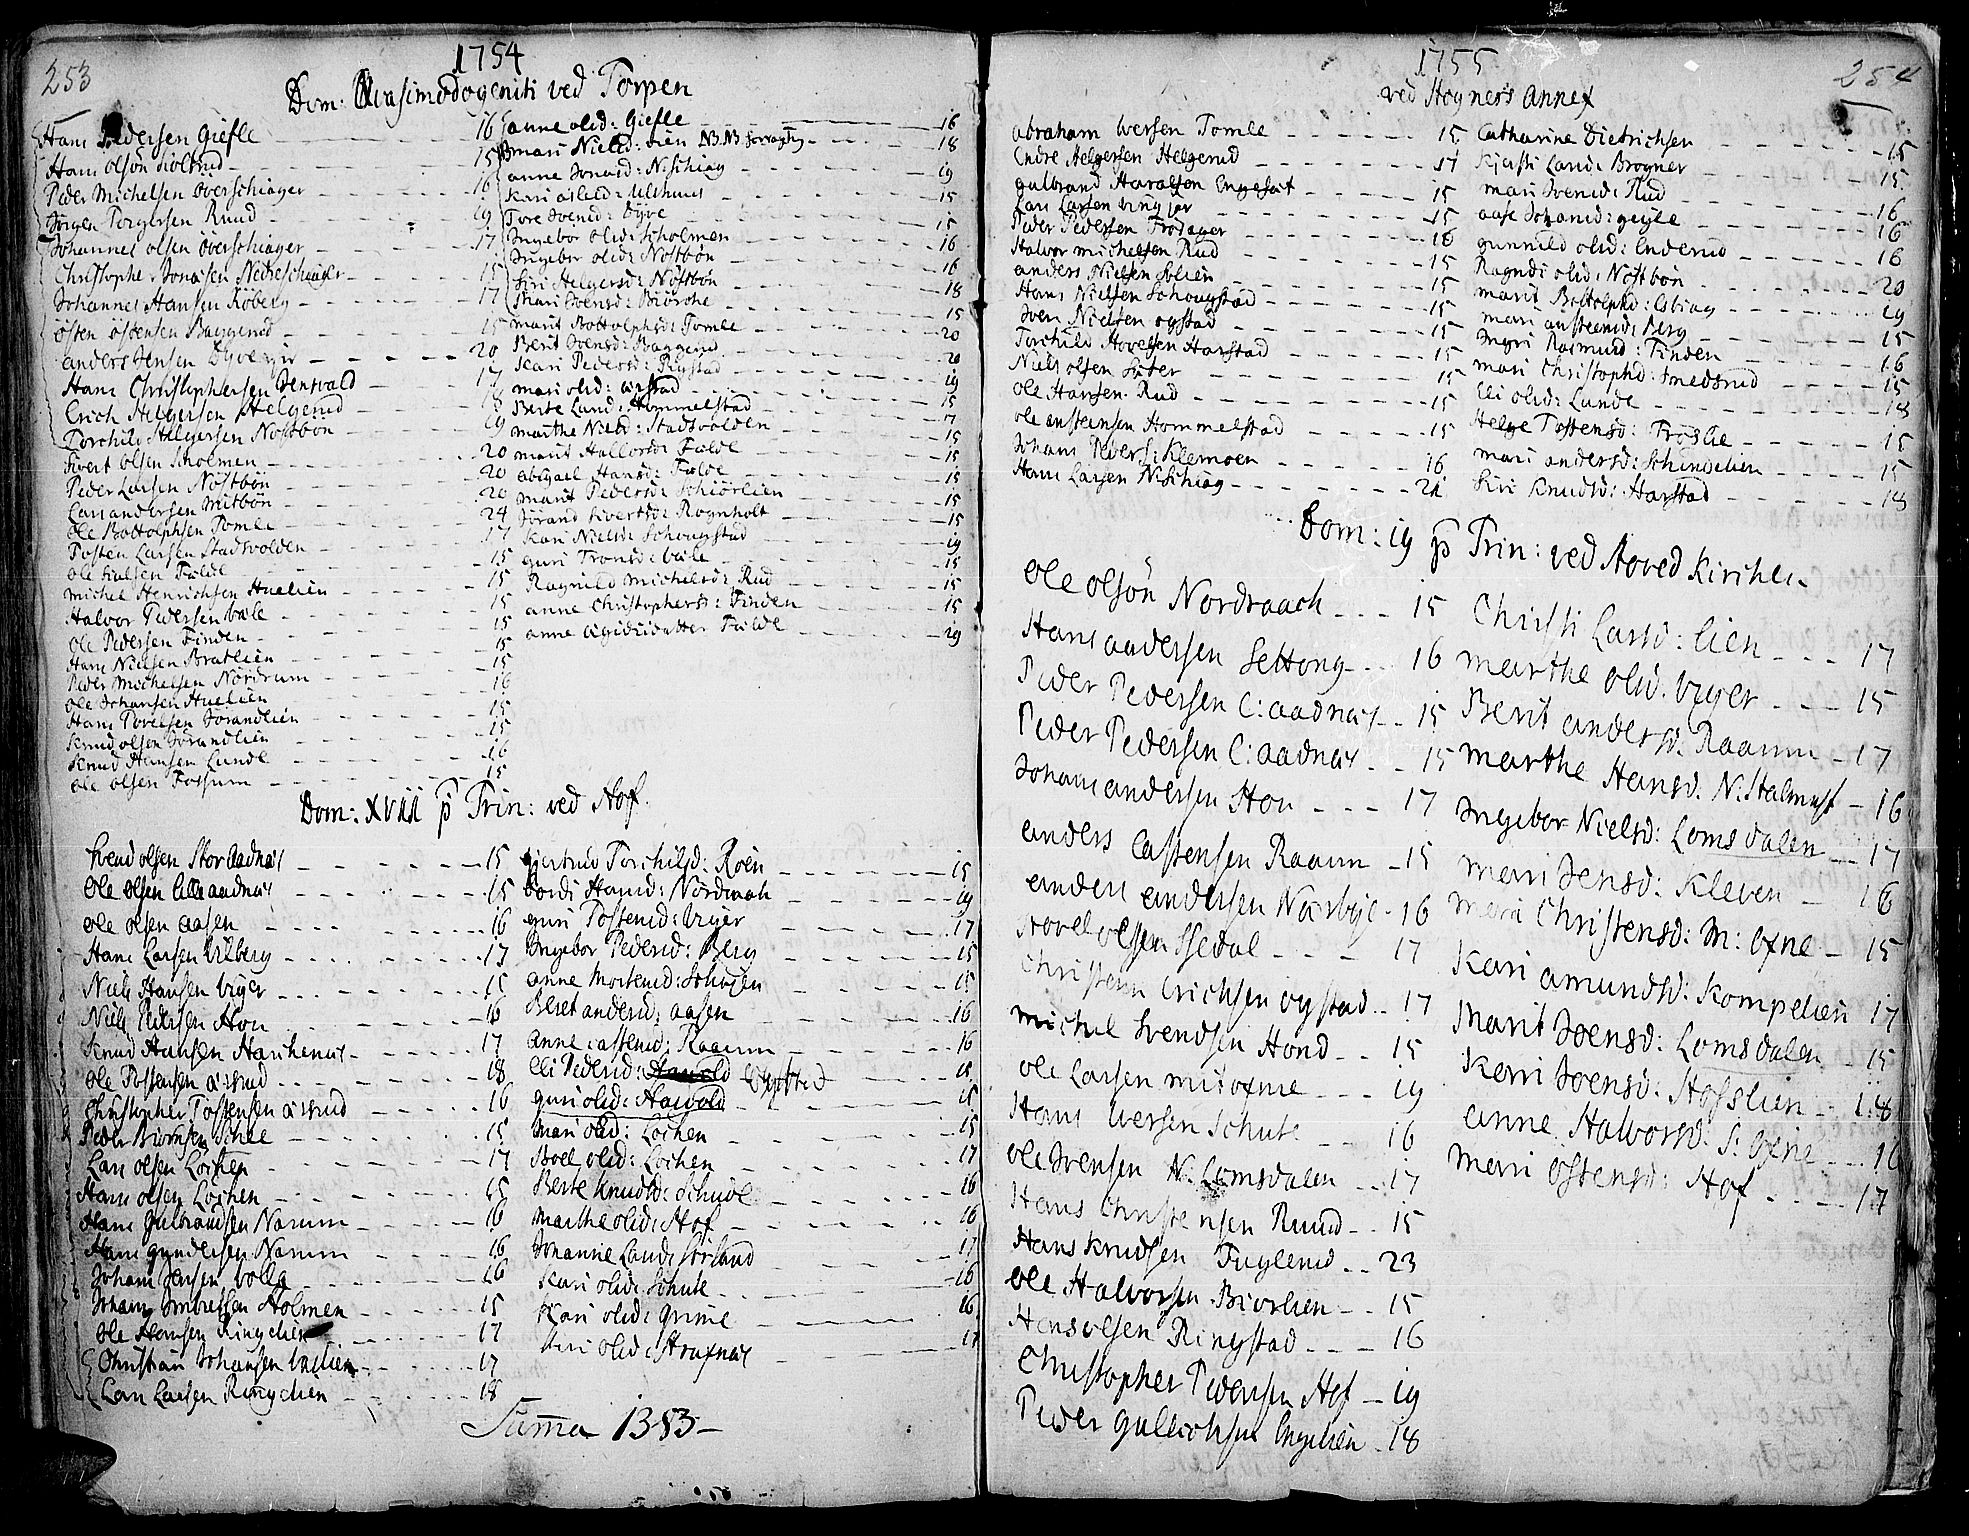 253
1754
Dom: Quasimodogeniti ved Torpen
Hans Pedersen Giefle 16
Hans Olsøn Kiolsrud 15
Peder Michelsen Overschiager 16
Jørgen Torgersen Ruud 19
Johannes Olsen Överschiager 17
Christopher Jonasen Nedreschiager 15
Johannes Hansen Røberg 17
Østen Østensen Baggerud 15
Anders Jensen Dyveygir 20
Hans Christophersen Jensvold 17
Erich Helgersen Helgerud 18
Torchild Helgersen Nøstbøn 19
Sivert Olsen Scholmen 20
Peder Larsen Nøstbøn 20
Lars Andersen Mitbøn 20
Ole Bottolphsen Tomle 24
Tosten Larsen Stadsvolden 17
Ole Falde 15
Michel Henrichsen Huelien 15
Halvor Pedersen Væle 15
Ole Pedersen Finden 15
Hans Nielsen Bratlien 15
Peder Michelsen Nordrum 15
Ole Johansen Huelien 16
Hans Povelsen Jørandlien 15
Knud Olsen Jørandlien 15
Knud Hansen Lunde 16
Ole Olsen Fossum 15
Anne Olsd: Giefle 16
Mari Nielsd: Lien NB. NB. 18
Anne Jonasd: N: Schiag 19
Kari Olsd: Ulshuus 15
Tore Svensd: Dyve 15
Ingebor Olsd: Scholmen 16
Ingebor Olsd: Nøstbøn 16
Siri Helgersd: Nøstbøn 18
Mari Svensd: Biørche 15
Marit Bottolphsd: Tomle 20
Berit Svensd: Baggerud 20
Kari Pedersd: Rystad 19
Mari Olsd: Aystad 15
Berte Larsd: Hommelstad 17
Marthe Nielsd: Stadsvolden 15
Marit Hallorsd: Falde 15
Abigael Hansd: Falde 15
Marit Pedersd: Schiørlien 15
Jørand Sivertsd: Rognholt 15
Kari Nielsd: Schougstad 19
Guri Tronsd: Væle 15
Ragnild Michelsd: Rud 15
Anne Christophersd: Finden 15
Anne Egididatter Falde 19
Dom: XVIII p Trin: ved Hof.
Svend Olsen Stor Aadnæs 15
Ole Olsen Lille Aadnæs 15
Ole Olsen Aasen 16
Hans Larsen Ulberg 17
Niels Hansen Vyer 15
Niels Pedersen Hou 16
Knud Hansen Harchenæs 17
Ole Tostensen Aasrud 18
Christopher Tostensen Aasrud 16
Peder Biørnsen Schee 15
Lars Olsen Lochen 17
Hans Olsen Lochen 15
Hans Gulbrandsen Narum 16
Hans Gundersen Narum 16
Johans Jensen Volla 16
Johans Imbretsen Holmen 15
Ole Hansen Ringelien 17
Christian Johansen 17
Lars Larsen Ringelien 18
Giertrud Torchilsd: Roen 15
Bordi Hansd: Nordraah 19
Guri Tostensd: Vyer 17
Ingebor Pedersd: Berg 15
Anne Mortensd: Schoyen 15
Beret Andersd: Aasen 16
Anne Castensd: Raaum 16
Eli Pedersd: 15
Guri Olsd: Havold 15
Mari Olsd: Lochen 15
Boel Olsd: Lochen 17
Berte Knudsd: Schude 16
Marthe Olsd: Hof 16
Johanne Larsd: Sørland 17
Kari Olsd: Schute 16
Kari Olsd: Grime 16
Siri Olsd: Strafnæs 17
Suma 1383

1755
254
ved Stogners Annex
Abraham Iversen Tomle 15
Endre Helgersen Helgerud 17
Gulbrand Haraldsen Engeset 15
Lars Larsen 15
Peder Pedersen Frøsager 16
Halvor Michelsen Rud 15
Anders Nielsen Solien 15
Hans Nielsen Schougstad 15
Sven Nielsen Ogstad 15
Torchild Hovelsen Harstad 15
Niels Olsen Sæter 15
Ole Hansen Rud 15
Ole Anstensen Hommelstad 15
Johans Peders: Klemoen 16
Hans Larsen N: Schiag 21
Catharine Dietrichsen 15
Kjersti Larsd: Brogner 15
Mari Svensd: Rud 16
Aase Johansd: Geyle 16
Gunnild Olsd: Enderud 16
Ragndi Olsd: Nøstbøn 20
Marit Bottolphd: Lsbiag 19
Mari Anstensd: Berg 15
Mari Rasmusd: Finden 16
Mari Christophd: Smedsrud 15
Eli Olsd: Lunde 18
Helge Tostensd: Frøslie 15
Mari Andersd: Schindelien 15
Siri Knudsd: Harstad 18
Dom: 19 p Trin: ved Hoved Kirchen
Ole Olsøn Nordraach 15
Hans Andersen Settong 16
Peder Pedersen L: Aadnæs 15
Peder Pedersen L: Aadnæs 15
Johans Andersen Hou 17
Anders Castensen Raaum 15
Anders Andersen Noersbye 16
Hovel Olsen Ssedal 17
Christen Erichsen Ogstad 17
Michel Svendsen Hond 15
Ole Larsen Mitøxne 19
Hans Iversen Schute 16
Ole Svensen N: Lomsdalen 17
Hans Christensen Ruud 15
Hans Knudsen Fuglerud 23
Ole Halvorsen Biørlien 15
Hans Olsen Ringstad 16
Christopher Pedersen Hof 19
Peder Gullichsen Engelien 18
Christi Larsd: Lien 17
Marthe Olsd. Vyer 15
Berit Andersd. Raaum 17
Marthe Hansd: N: Halmrast 16
Ingebor Nielsd: Lomsdalen 17
Mari Jensd: Kleven 16
Mari Christensd: M: Øxne 15
Kari Amundsd: Kompelien 17
Marit Joensd: Lomsdalen 15
Kari Joensd: Hofslien 18
Anne Halvorsd: S: Øxne 16
Mari Østensd: Hof 17